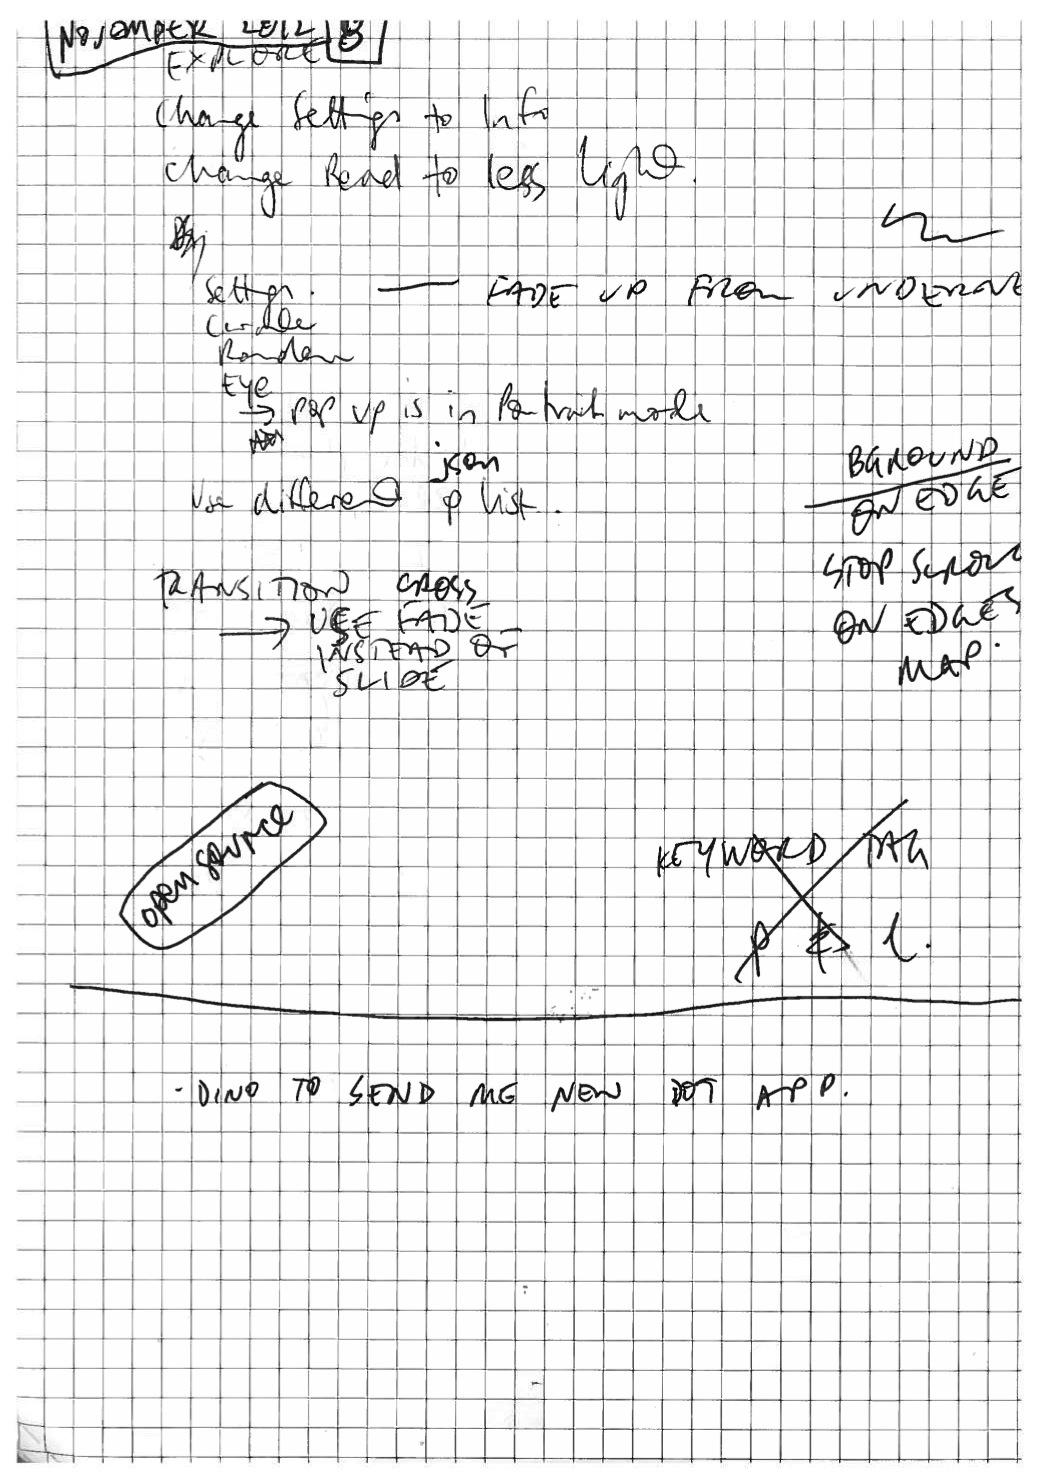 NOVEMBER 2012 B
EXPLORE
Change Settings to Info
Change Read to less light.
Settings. — FADE UP FROM UNDERNE
Circle
Random
Eye
→ POP UP is in Portrait mode
json
Use different p list.
BGROUND
ON EDGE
STOP SCROLL
ON EDGES
MAP.
TRANSITION CROSS
→ USE FADE
INSTEAD OF
SLIDE
open source
KEYWORD TAG
- DINO TO SEND ME NEW DOT APP.